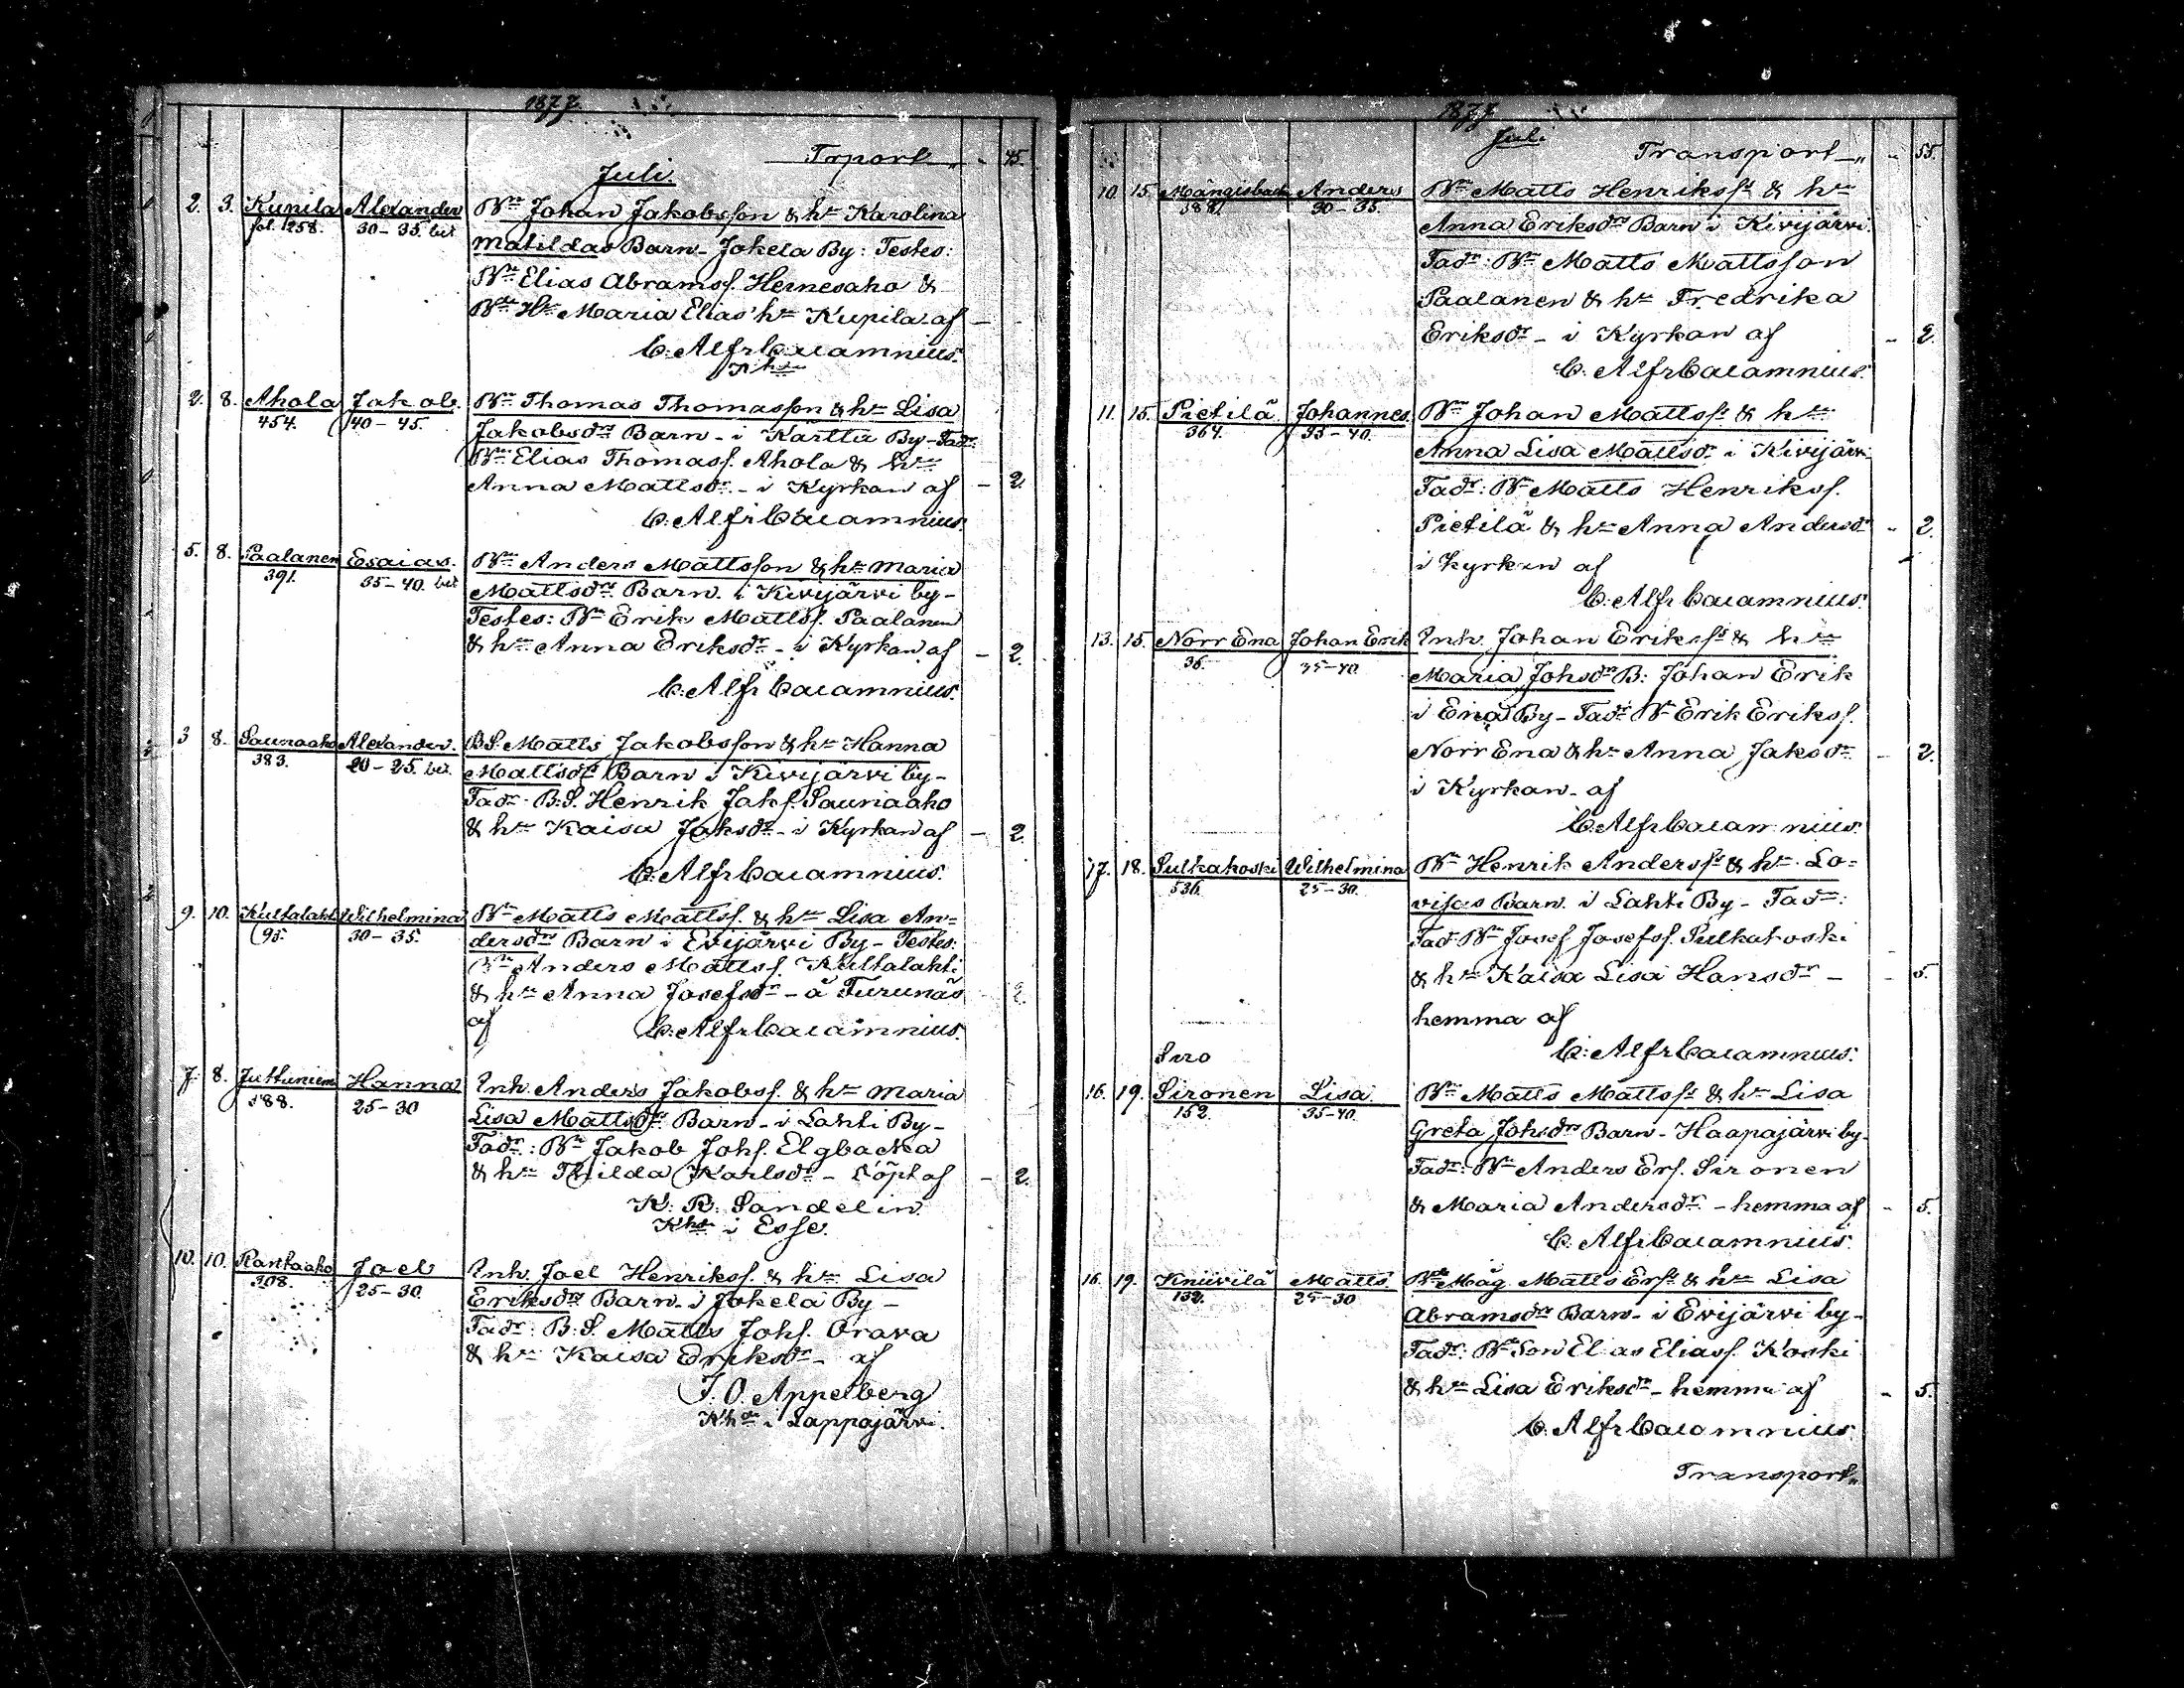 1877.
Trport „ - 45.
Juli.
2. 3. Kupila Alexander Bn Johan Jakobsson & hn Karolina
fol. 1258. 30-35. bet Matildas Barn - Jokela By: Testes:
Bn Elias Abramsf. Hernesaho &
Bn Hn Maria Elias' hn Kupila af -
C: Alfr Cacamnius.
Khn
2. 8. Ahola Jakob. Bn Thomas Thomasson & hn Lisa
454. 40-45. Jakobsdrs Barn - i Kärttu By - Fadr:
Bn Elias Thomasf. Ahola & hn
Anna Mattsdr - i Kyrkan af - 2.
C: Alfr Cacamnius.
5. 8. Paalanen Esaias. Bn Anders Mattsson & hn Maria
391. 35-40. bet Mattsdrs Barn. i Kivijärvi by -
Testes: Bn Erik Mattsf. Paalanen
& hn Anna Eriksdr - i Kyrkan af - 2.
C: Alfr Cacamnius.
3 8. Saunaaho Alexander. B.S. Matts Jakobsson & hn Hanna
383. 20-25. bet. Mattsdrs Barn i Kivijärvi by -
Fadr: B:S. Henrik Jakf. Saunaaho
& hn Kaisa Jaksdr - i Kyrkan af - 2.
C: Alfr Cacamnius.
9. 10. Kultalahti Wilhelmina Bn Matts Mattsf. & hn Lisa An=
95. 30-35. dersdrs Barn i Evijärvi By - Testes:
Bn Anders Mattsf. Kultalahti
& hn Anna Josefsdr - å Furunäs 2.
af C: Alfr Cacamnius.
7. 8. Juttuniem Hanna Inh. Anders Jakobsf. & hn Maria
588. 25-30 Lisa Mattsdrs Barn - i Lahti By -
Fadr: Bn Jakob Johf. Elgbacka
& hn Thilda Karlsdr - döpt af - 2.
K: R: Sandelin
Khn i Esse.
10. 10. Rantaaho Joel Inh. Joel Henriksf. & hn Lisa
308. 25-30 Eriksdrs Barn - i Jokela By -
Fadr: B:S. Matts Johf. Orava
& hn Kaisa Eriksdr - af
J. O. Appelberg
Khn i Lappajärvi.
1877
Juli Transport „ - 55.
10. 15. Mångisback Anders Bn Matts Henriksfs & hn
30-35. Anna Eriksdrs Barn i Kivijärvi.
Fadr: Bn Matts Mattsson
Paalanen & hn Fredrika
Eriksdr - i Kyrkan af - 2.
C: Alfr Cacamnius.
11. 15. Pietilä Johannes. Bn Johan Mattsfs & hn
364. 35-40. Anna Lisa Mattsdr i Kivijärvi
Fadr: Bn Matts Henriksf.
Pietilä & hn Anna Andersdr - 2.
i Kyrkan af
C: Alfr Cacamnius.
13. 15. Norr Ena Johan Erik Inh. Johan Eriksfs & hn
36. 35-40. Maria Johsdrs B: Johan Erik
i Ena By - Fadr Bn Erik Eriksf.
Norr Ena & hn Anna Jaksdr - 2.
i Kyrkan - af
C: Alfr Cacamnius.
17. 18. Sulkakoski Wilhelmina Bn Henrik Andersfs & hn Lo=
536. 25-30. visas Barn. i Lahti By - Fadr:
Fad Bn Josef Josefsf. Sulkakoski
& hn Kaisa Lisa Hansdr - - 5.
hemma af
C: Alfr Cacamnius.
Siro
16. 19. Sironen Lisa. Bn Matts Mattsfs & hn Lisa
152. 35-40. Greta Johsdrs Barn - Haapajärvi by -
Fadr: Bn Anders Erf. Sironen
& Maria Andersdr - hemma af - 5.
C: Alfr Cacamnius.
16. 19. Kniivilä Matts. Bn Måg Matts Erfs & hn Lisa
132. 25-30 Abramsdrs Barn - i Evijärvi by -
Fadr: Bn Son Elias Eliasf. Koski
& hn Lisa Eriksdr - hemma af - 5.
C: Alfr Cacamnius.
Transport „